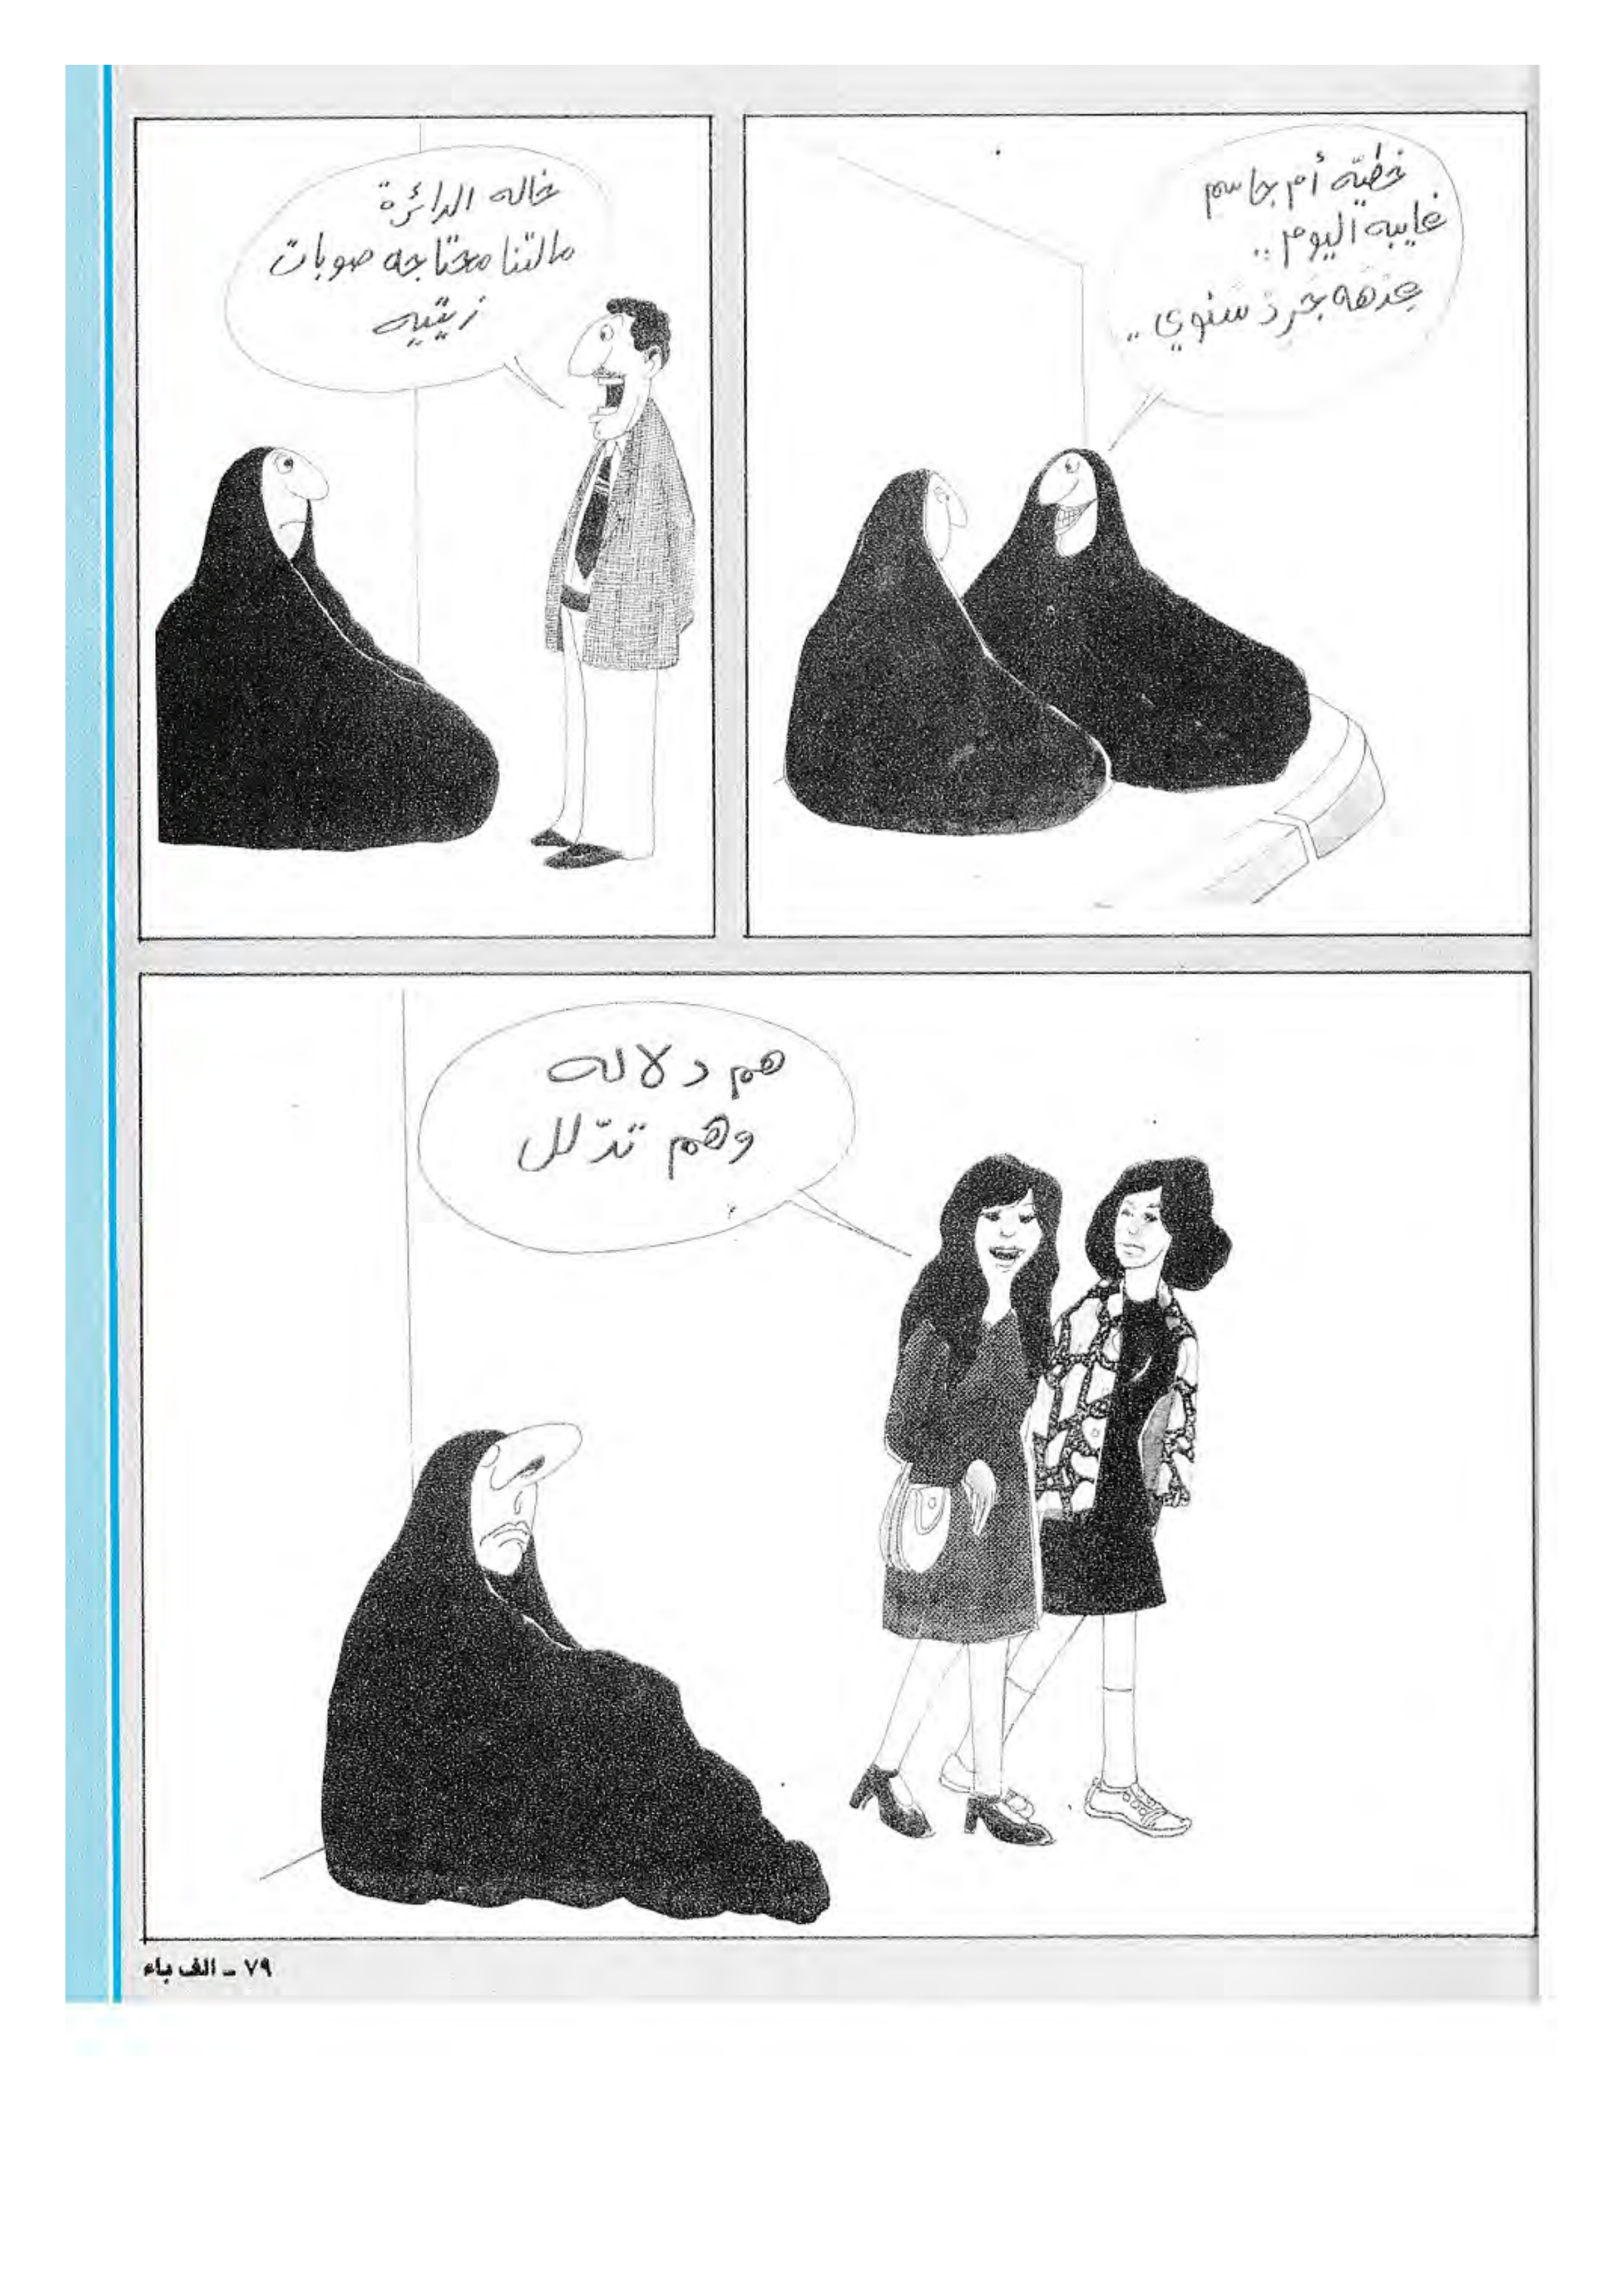 خطيّه أم جاسم
غايبه اليوم..
عدهه جرد سنوي..
خاله الدائرة
مالتنا محتاجه صوبات
زيتيه
هم دلاله
وهم تدّلل
٧٩ ـ الف باء